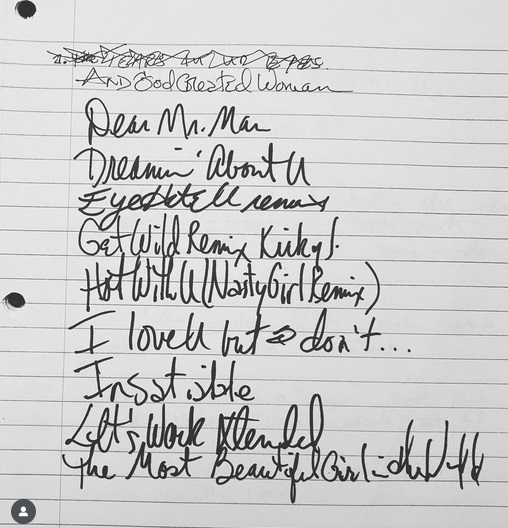 And God Created Woman
Dear Mr. Man
Dreamin' About U
Eye Hate U remix
Get Wild Remix Kirky J.
Hot With U (Nasty Girl Remix)
I love U but I don't...
Insatible
Let's Work Xtended
The Most Beautiful Girl in the World